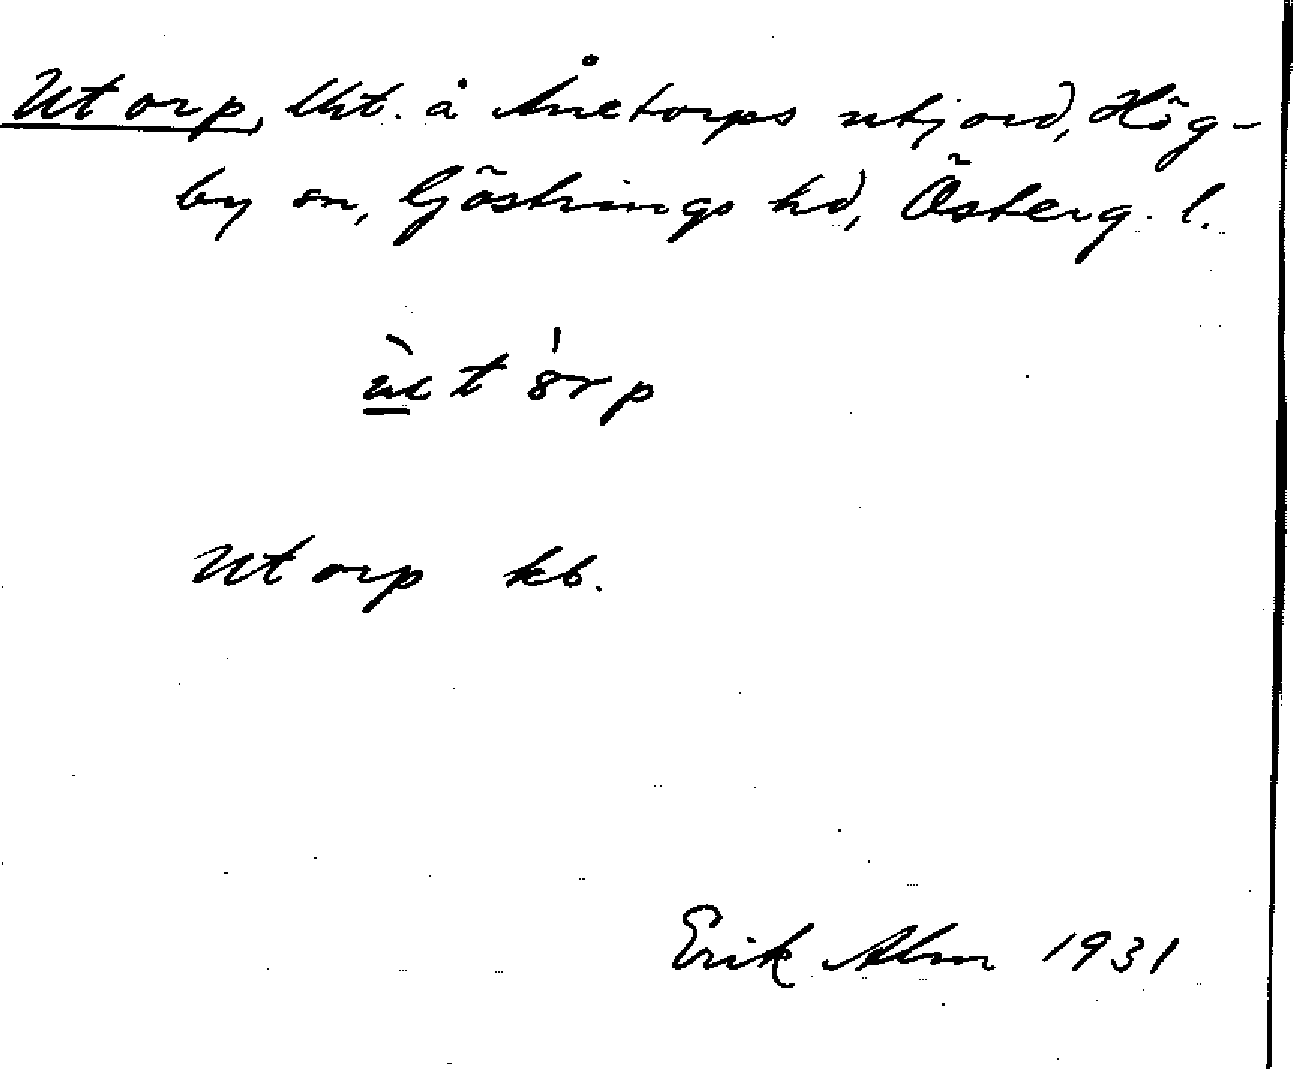 Utorp, lht. å Ånetorps utjord, Hög-
by sn, Göstrings hd, Österg. l.
ùtórp
Utorp kb.
Erik Alm 1931